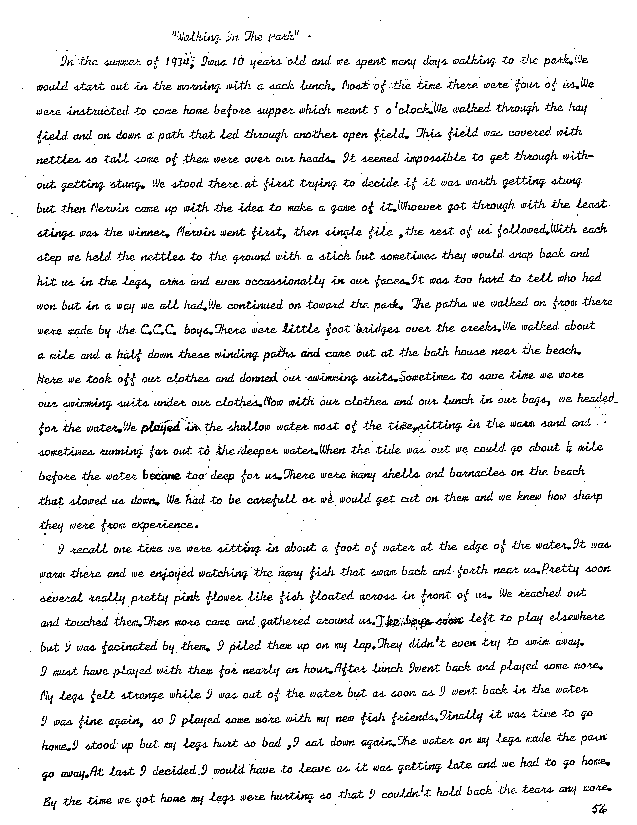 "Walking In The Park"
In the summer of 1934, I was 10 years old and we spent many days walking to the park.We
would start out in the morning with a sack lunch. Most of the time there were four of us.We
were instructed to come home before supper which meant 5 o'clock.We walked through the hay
field and on down a path that led through another open field. This field was covered with
nettles so tall some of them were over our heads. It seemed impossible to get through with-
out getting stung. We stood there at first trying to decide if it was worth getting stung
but then Mervin came up with the idea to make a game of it.Whoever got through with the least
stings was the winner. Mervin went first, then single file ,the rest of us followed.With each
step we held the nettles to the ground with a stick but sometimes they would snap back and
hit us in the legs, arms and even occassionally in our faces.It was too hard to tell who had
won but in a way we all had.We continued on toward the park. The paths we walked on from there
were made by the C.C.C. boys.There were little foot bridges over the creeks.We walked about
a mile and a half down these winding paths and came out at the bath house near the beach.
Here we took off our clothes and donned our swimming suits.Sometimes to save time we wore
our swimming suits under our clothes.Now with our clothes and our lunch in our bags, we headed
for the water.We played in the shallow water most of the time,sitting in the warm sand and
sometimes running far out to the deeper water.When the tide was out we could go about ¼ mile
before the water became too deep for us.There were many shells and barnacles on the beach
that slowed us down. We had to be carefull or we would get cut on them and we knew how sharp
they were from experience.
I recall one time we were sitting in about a foot of water at the edge of the water.It was
warm there and we enjoyed watching the many fish that swam back and forth near us.Pretty soon
several really pretty pink flower like fish floated across in front of us. We reached out
and touched them.Then more came and gathered around us.The boys soon left to play elsewhere
but I was facinated by them. I piled them up on my lap.They didn't even try to swim away.
I must have played with them for nearly an hour.After lunch I went back and played some more.
My legs felt strange while I was out of the water but as soon as I went back in the water
I was fine again, so I played some more with my new fish friends.Finally it was time to go
home.I stood up but my legs hurt so bad ,I sat down again.The water on my legs made the pain
go away.At last I decided I would have to leave as it was getting late and we had to go home.
By the time we got home my legs were hurting so that I couldn't hold back the tears any more.
56